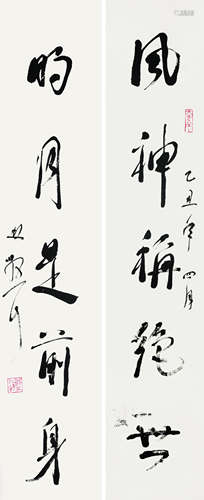 風神稱絕世
乙丑年四月
明月是前身